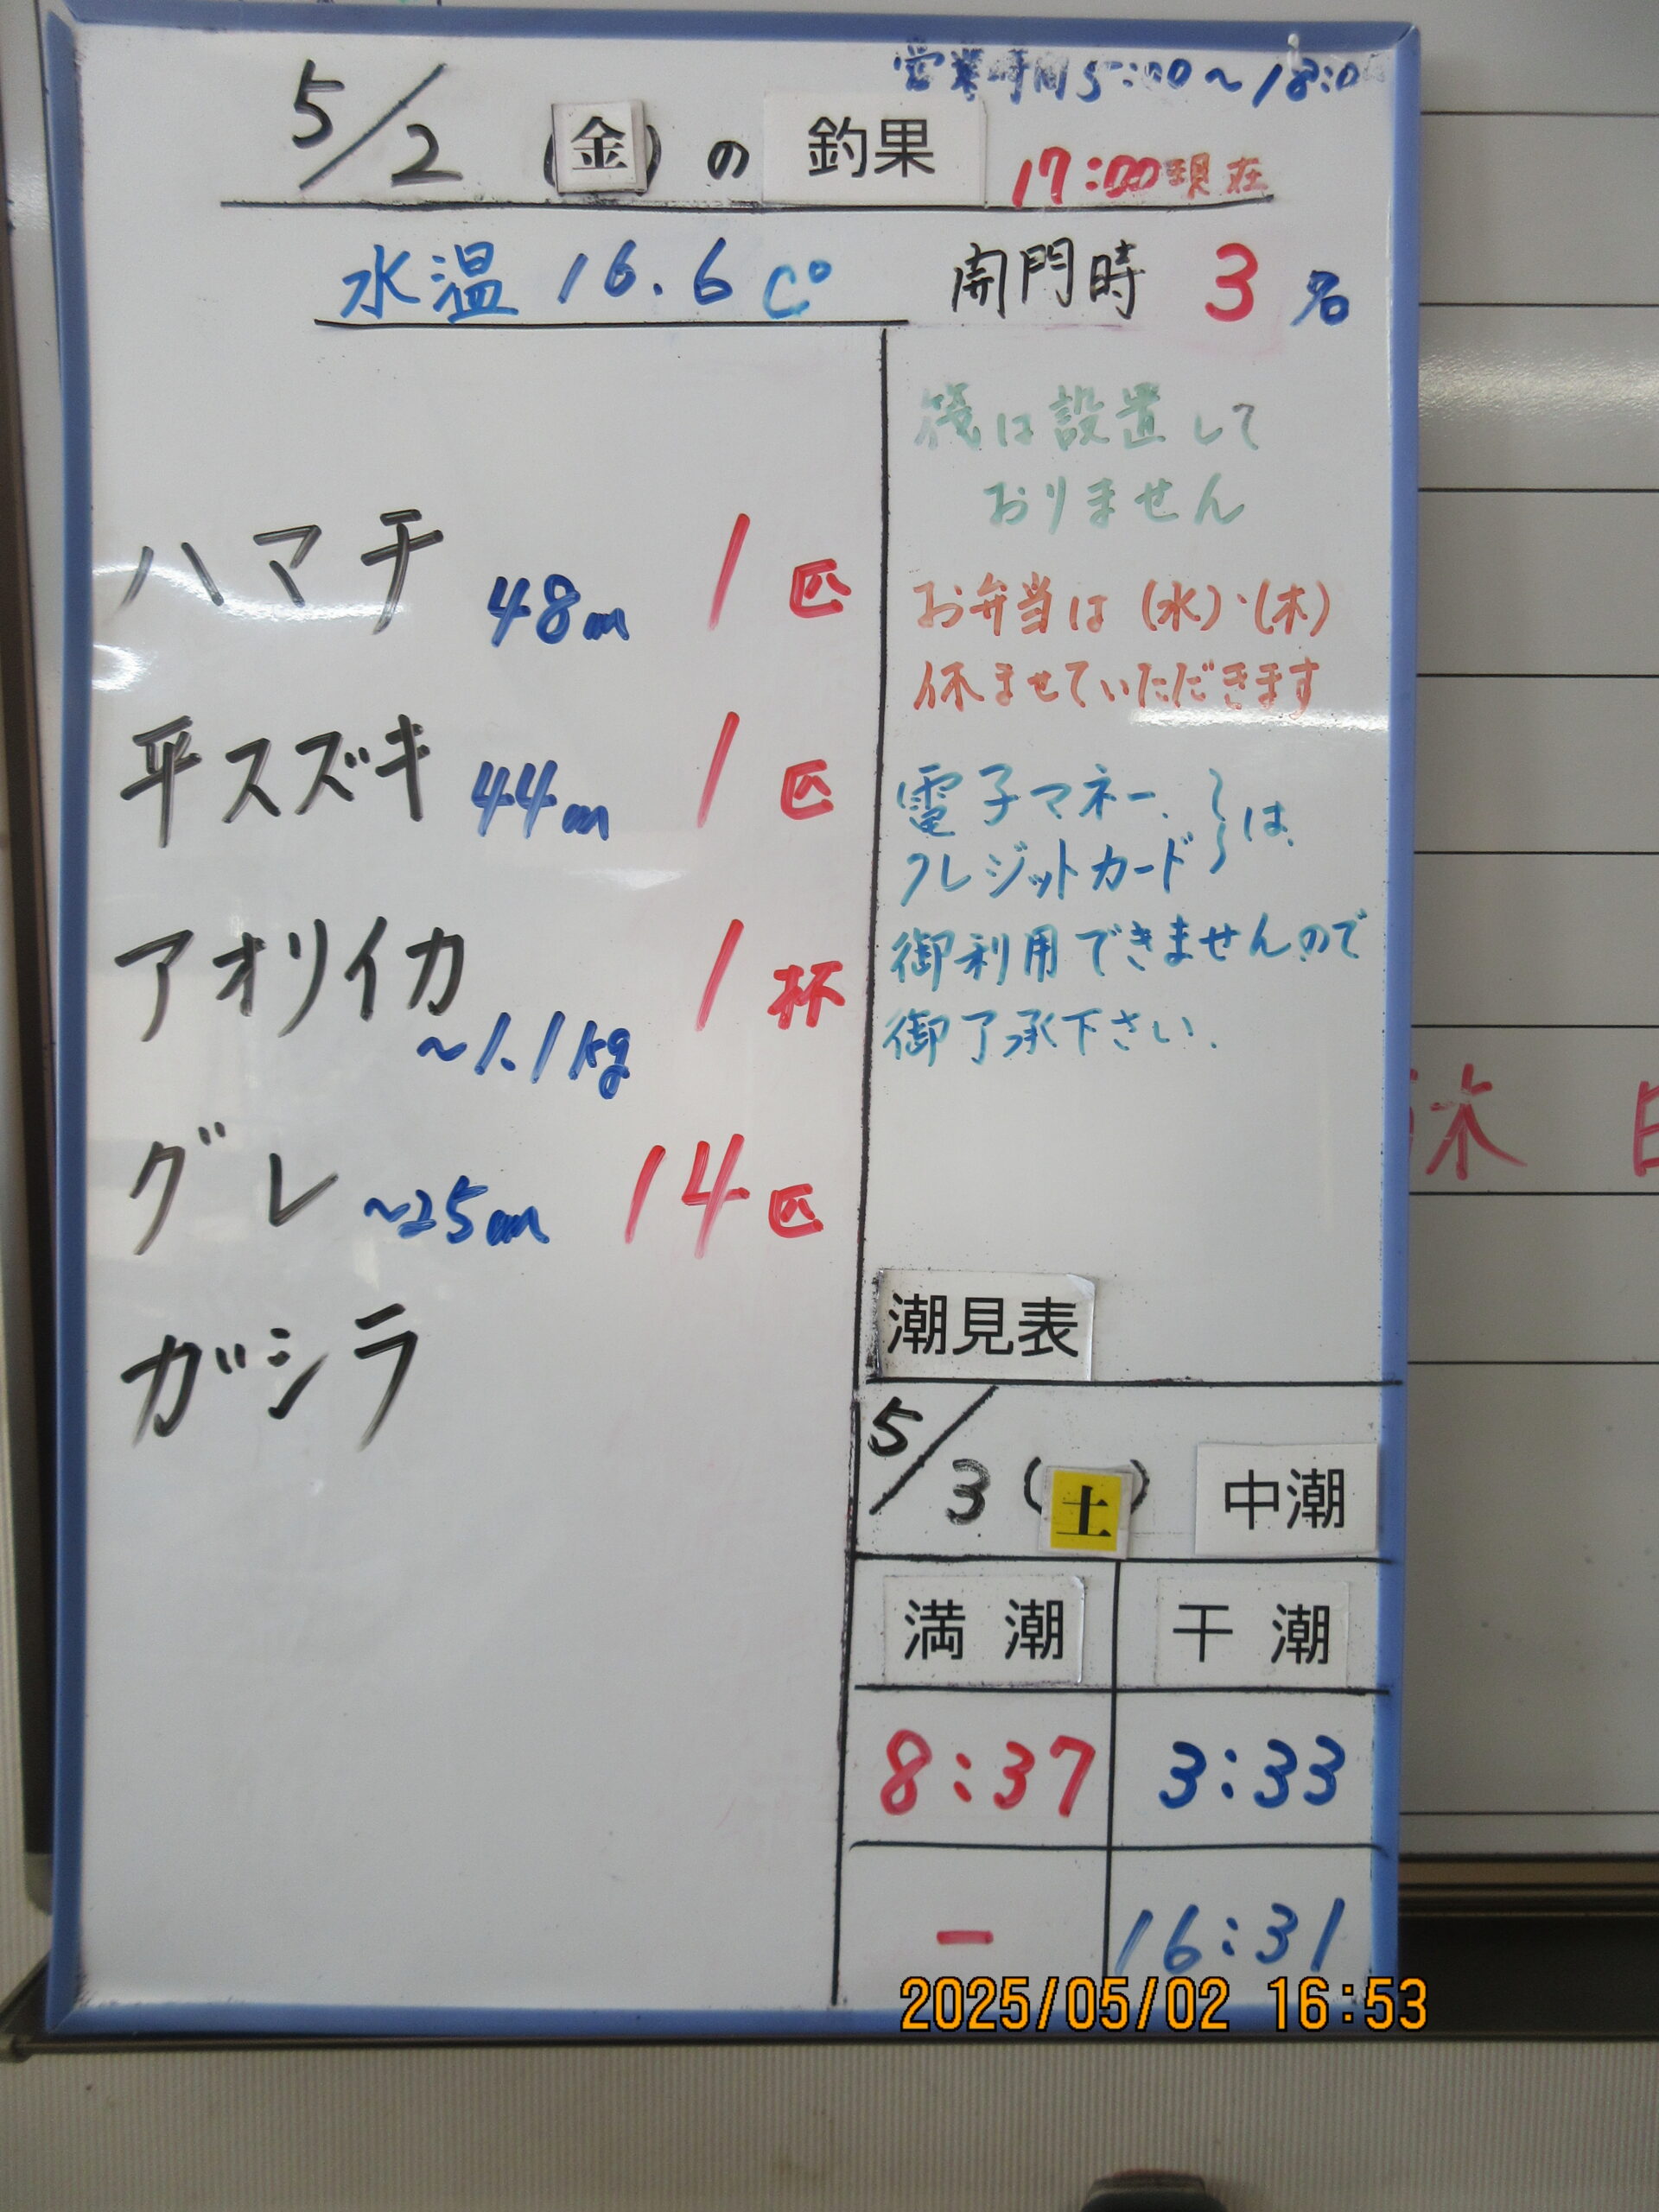 営業時間5:00～18:0
5/2 (金) の 釣果 17:00現在
水温 16.6 C° 開門時 3 %
筏は設置して
おりません
お弁当は (水)・(木)
休ませていただきます
電子マネー、
クレジットカード } は、
御利用できませんので
御了承下さい.
ハマチ 48cm 1 匹
平スズキ 44cm 1 匹
アオリイカ ～1.1kg 1 杯
グレ ～25cm 14 匹
ガシラ
潮見表
5/3 (土) 中潮
満潮 干潮
8:37 3:33
ー 16:31
休 日
2025/05/02 16:53